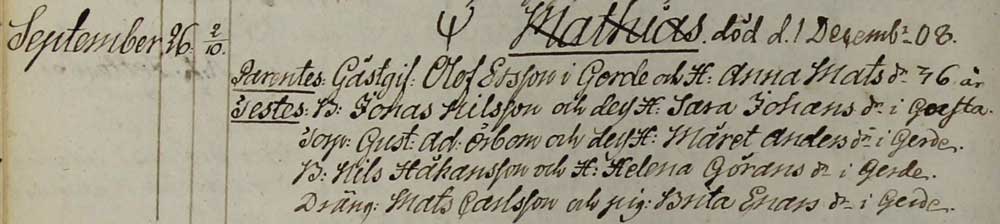 September 26. 2/10. Mathias. död d. 1 Decemb: 08.
Parentes: Gästgif: Olof Ersson i Gerde och H: Anna Mats dr 46 år
Testes: B: Jonas Nilsson och dess H: Sara Johans dr i
Torp: Gust: Ad: Örbom och dess H: Märet Anders dr i Gerde.
B: Nils Håkansson och H: Helena Görans dr i Gerde.
Dräng: Mats Carlsson och pig: Brita Enars dr i Gerde.